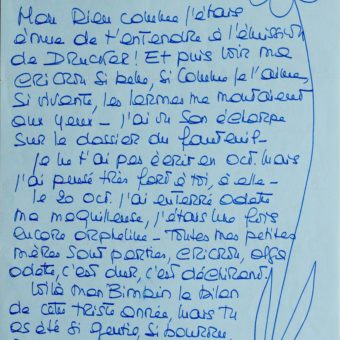 Mon Dieu comme j'étais
émue de t'entendre à l'émission
de DRucker ! Et puis voir ma
cricri si belle, si comme je l'aime,
si vivante, les larmes me montaient
aux yeux - j'ai vu son écharpe
sur le dossier du fauteuil -
je ne t'ai pas écrit en oct. mais
j'ai pensé très fort à toi, à elle -
le 20 oct. j'ai enterré odette
ma maquilleuse, j'étais une fois
encore orpheline - Toutes mes petites
mères sont parties, cricri, olga
odette, c'est dur, c'est déchirant.
Voilà mon le bilan
de cette triste année, mais tu
as été si gentil, si